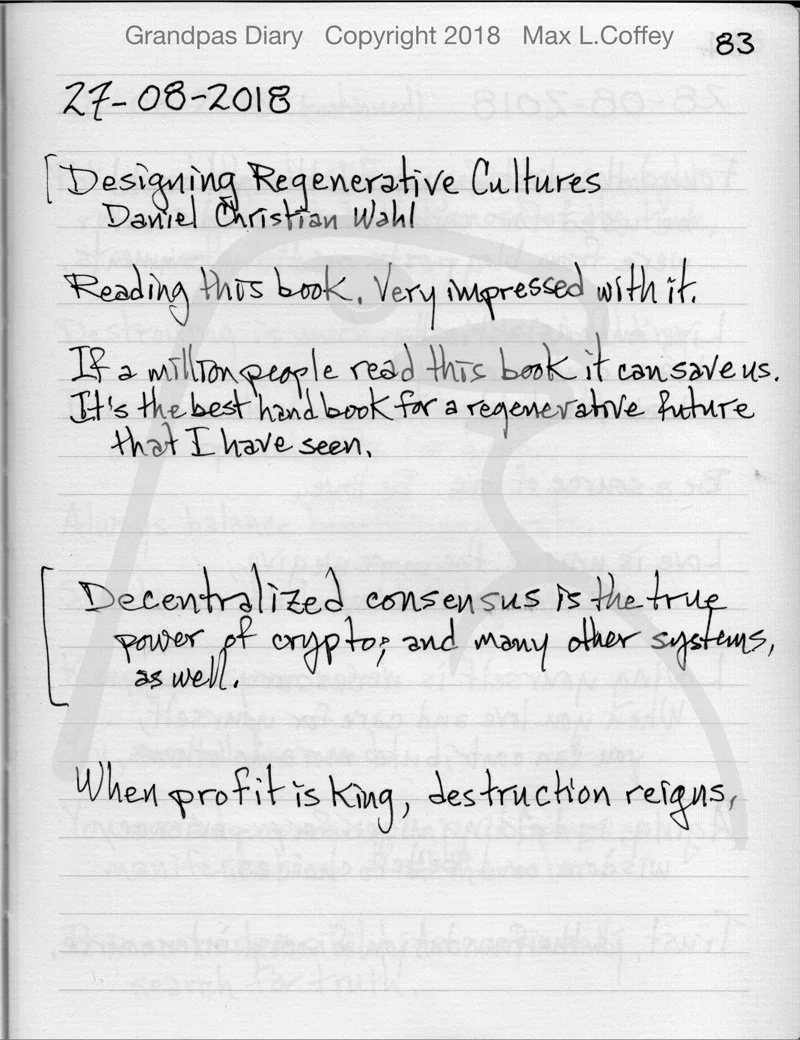 Grandpas Diary Copyright 2018 Max L.Coffey
83
27-08-2018
[Designing Regenerative Cultures
Daniel Christian Wahl
Reading this book. Very impressed with it.
If a million people read this book it can save us.
It's the best handbook for a regenerative future
that I have seen.
[Decentralized consensus is the true
power of crypto; and many other systems,
as well.
When profit is king, destruction reigns.